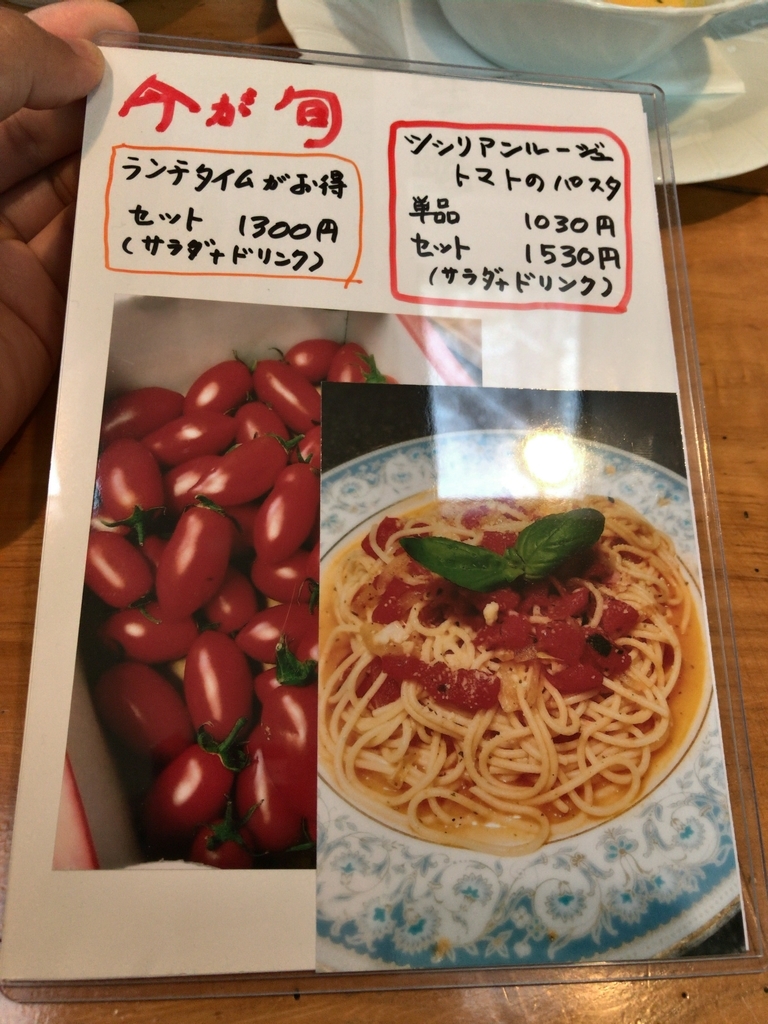 今が旬
ランチタイムがお得
セット 1300円
(サラダ+ドリンク)
シシリアンルージュ
トマトのパスタ
単品 1030円
セット 1530円
(サラダ+ドリンク)